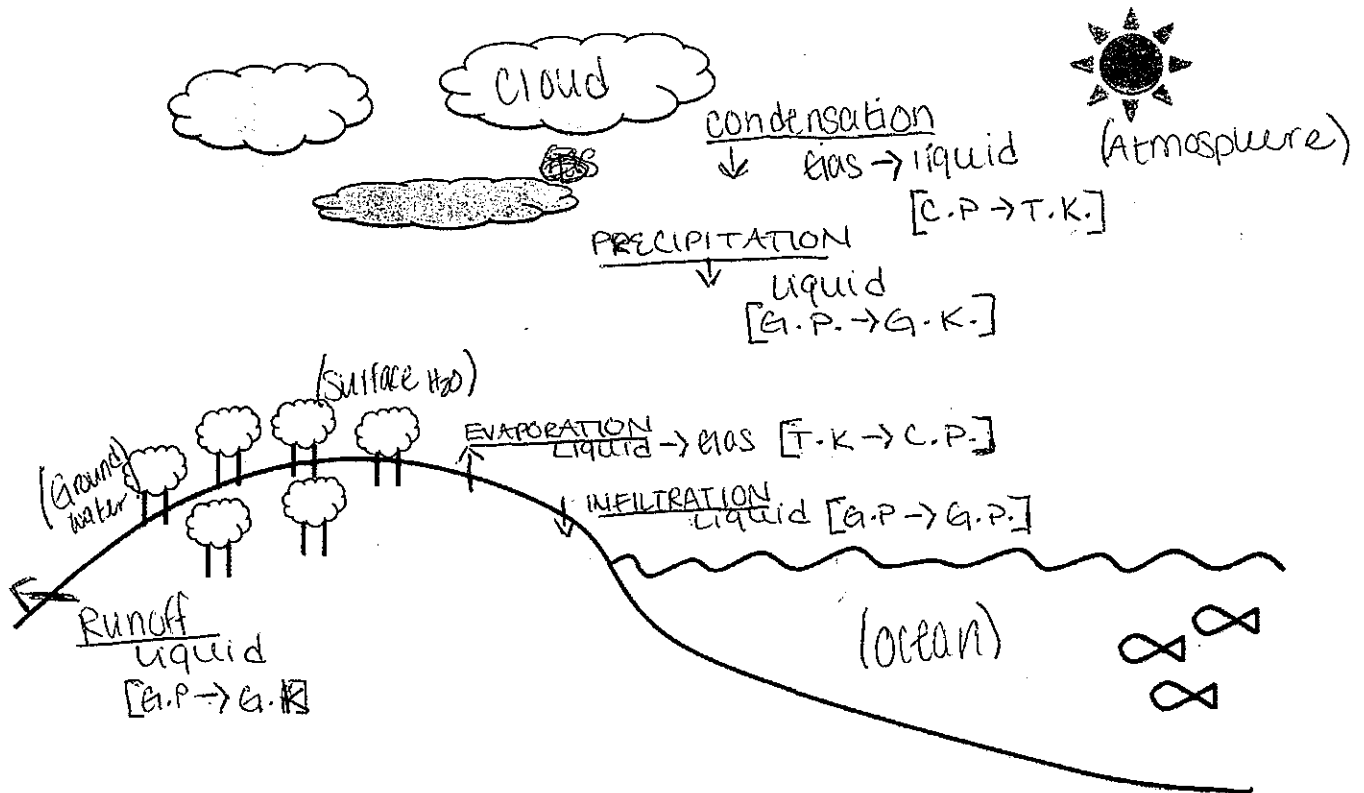 Cloud
condensation
↓ Gas → liquid
[C.P → T.K.]
(Atmosphere)
PRECIPITATION
↓
Liquid
[G.P. → G.K.]
(Surface H2O)
(Ground
water)
↑ EVAPORATION
Liquid → Gas [T.K → C.P.]
↓ INFILTRATION
Liquid [G.P → G.P.]
← Runoff
Liquid
[G.P → G.K]
(ocean)